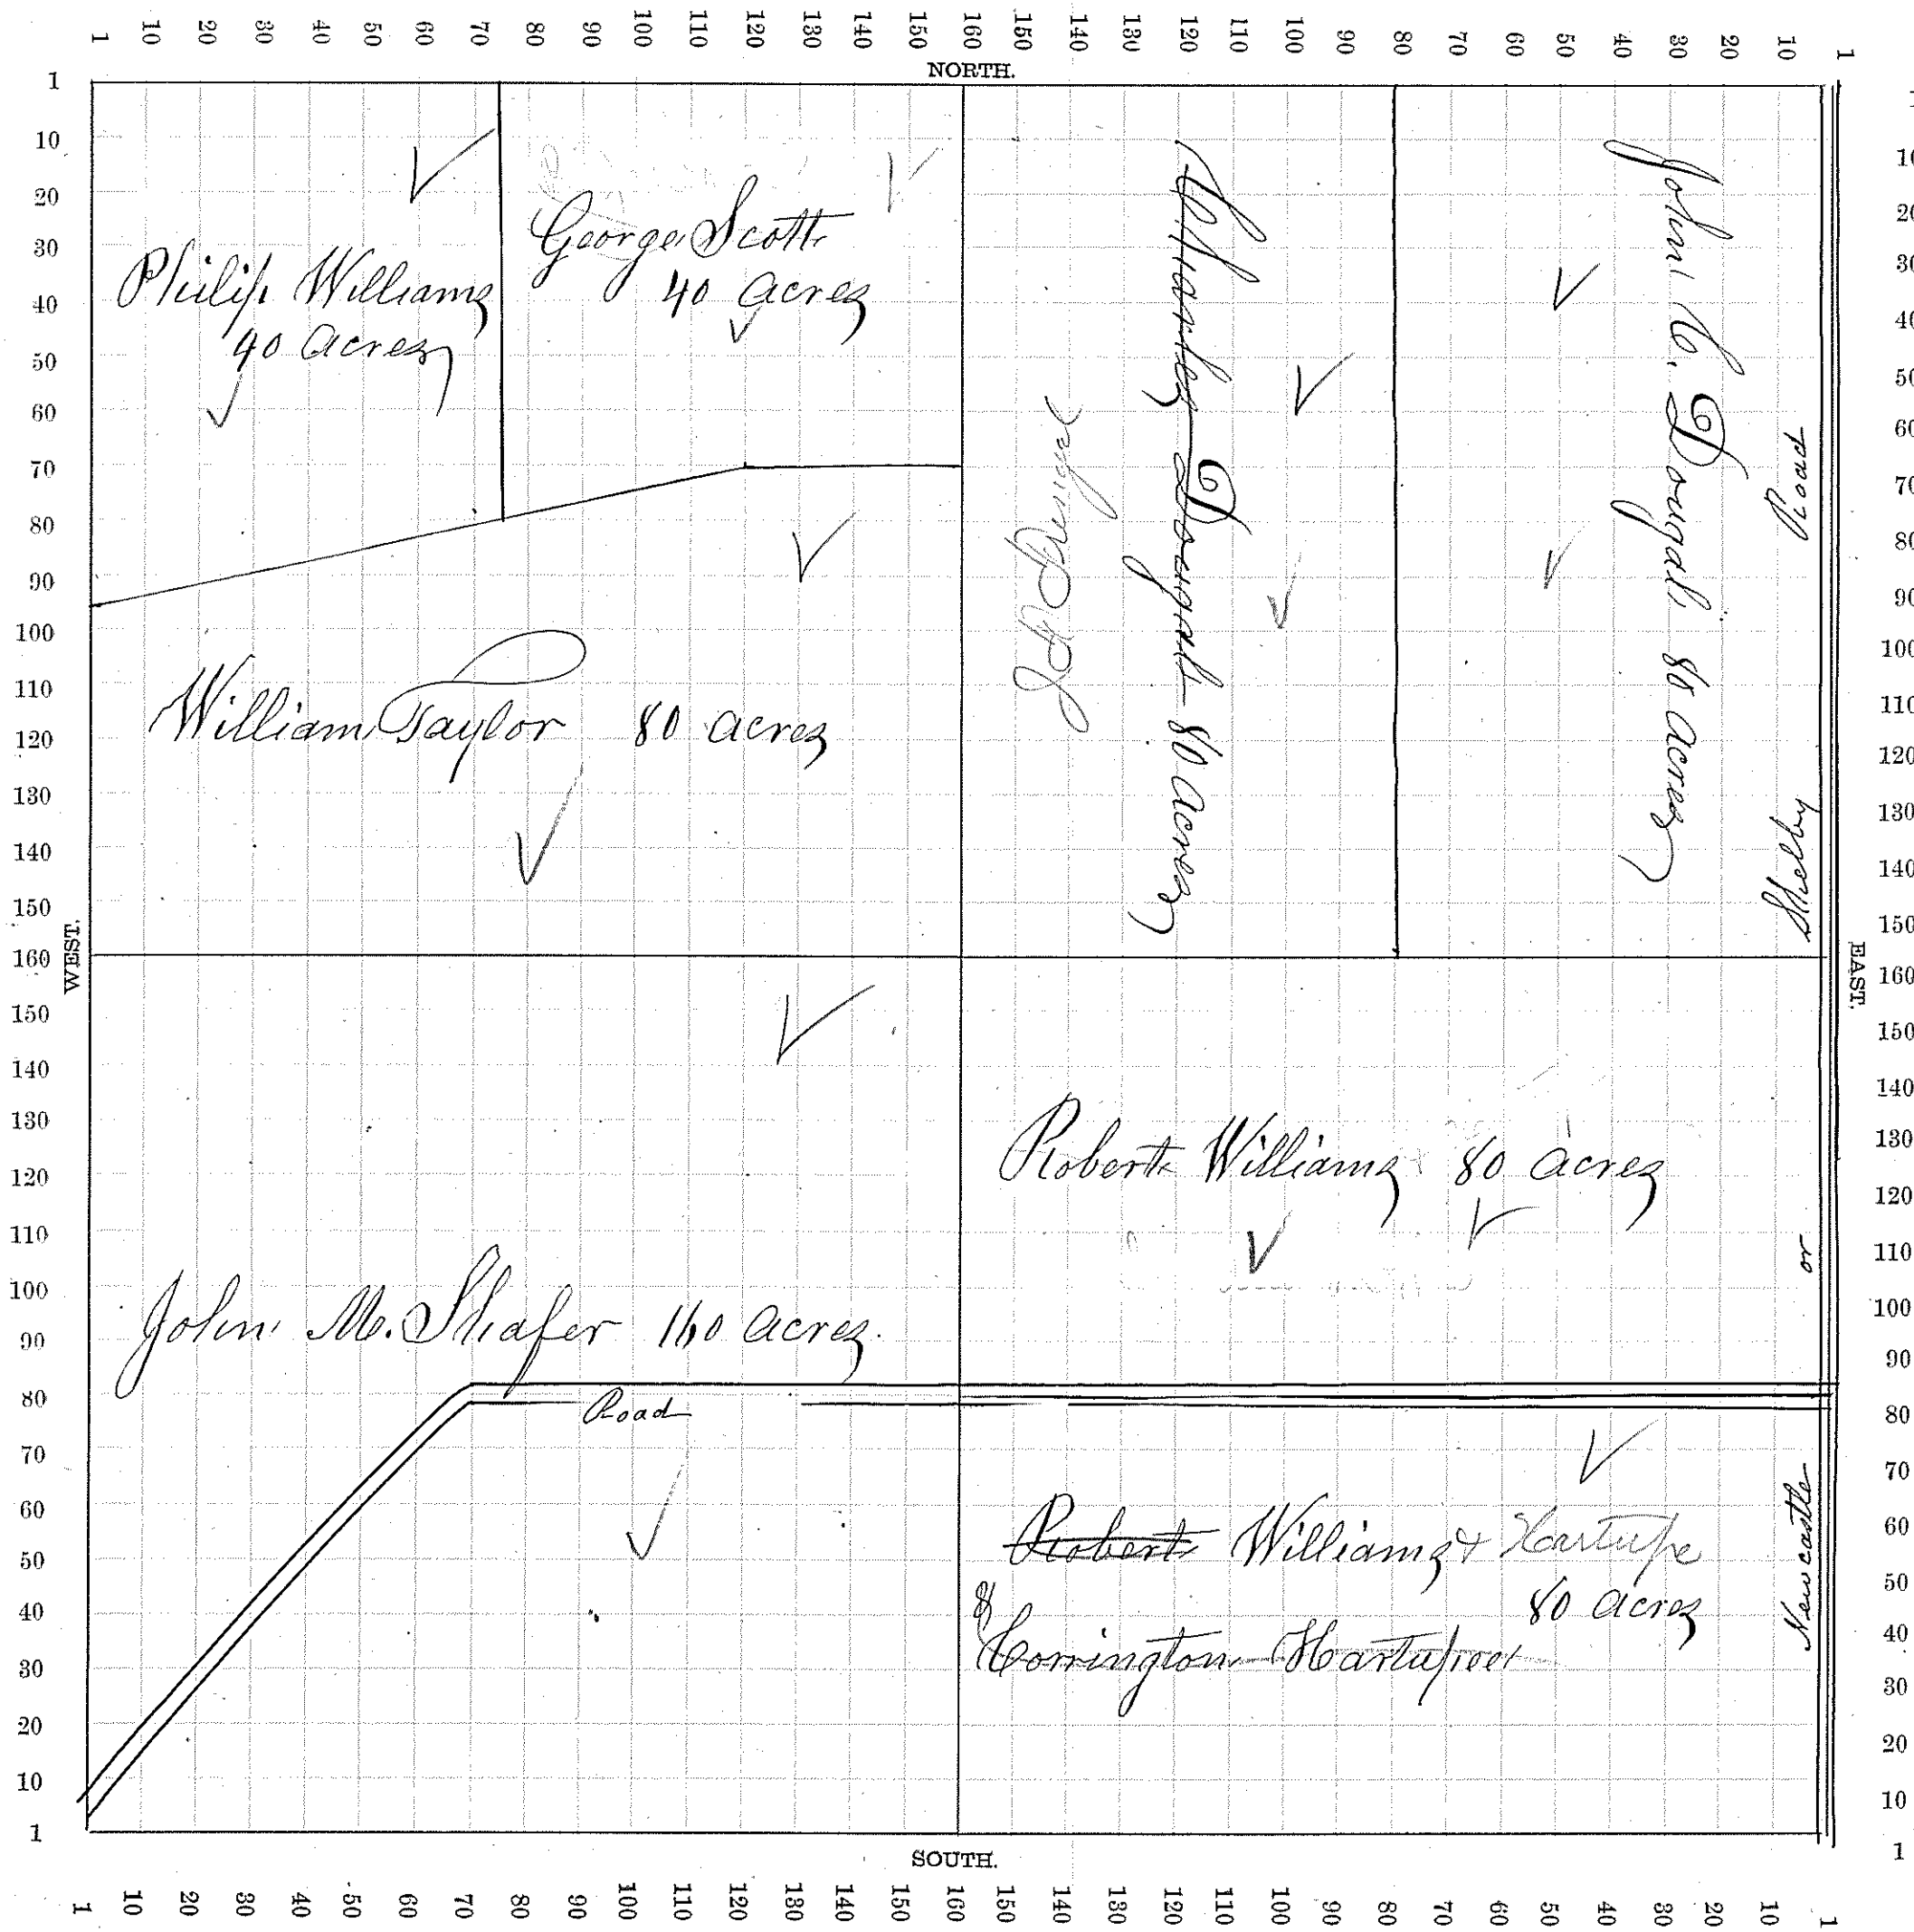 1 10 20 30 40 50 60 70 80 90 100 110 120 130 140 150 160 150 140 130 120 110 100 90 80 70 60 50 40 30 20 10 1
NORTH.
1 10 20 30 40 50 60 70 80 90 100 110 120 130 140 150 160 150 140 130 120 110 100 90 80 70 60 50 40 30 20 10 1
WEST.
Philip Williams
40 Acres
George Scott
40 Acres
William Taylor 80 Acres
Charles Dougal 80 Acres
John C. Dougal 80 Acres
Road
Shelby
or
Newcastle
John M. Shafer 160 Acres.
Road
Robert Williams 80 Acres
Robert Williams & Hartupe
80 Acres
& Corrington Hartupee
EAST.
10 20 30 40 50 60 70 80 90 100 110 120 130 140 150 160 150 140 130 120 110 100 90 80 70 60 50 40 30 20 10 1
SOUTH.
1 10 20 30 40 50 60 70 80 90 100 110 120 130 140 150 160 150 140 130 120 110 100 90 80 70 60 50 40 30 20 10 1